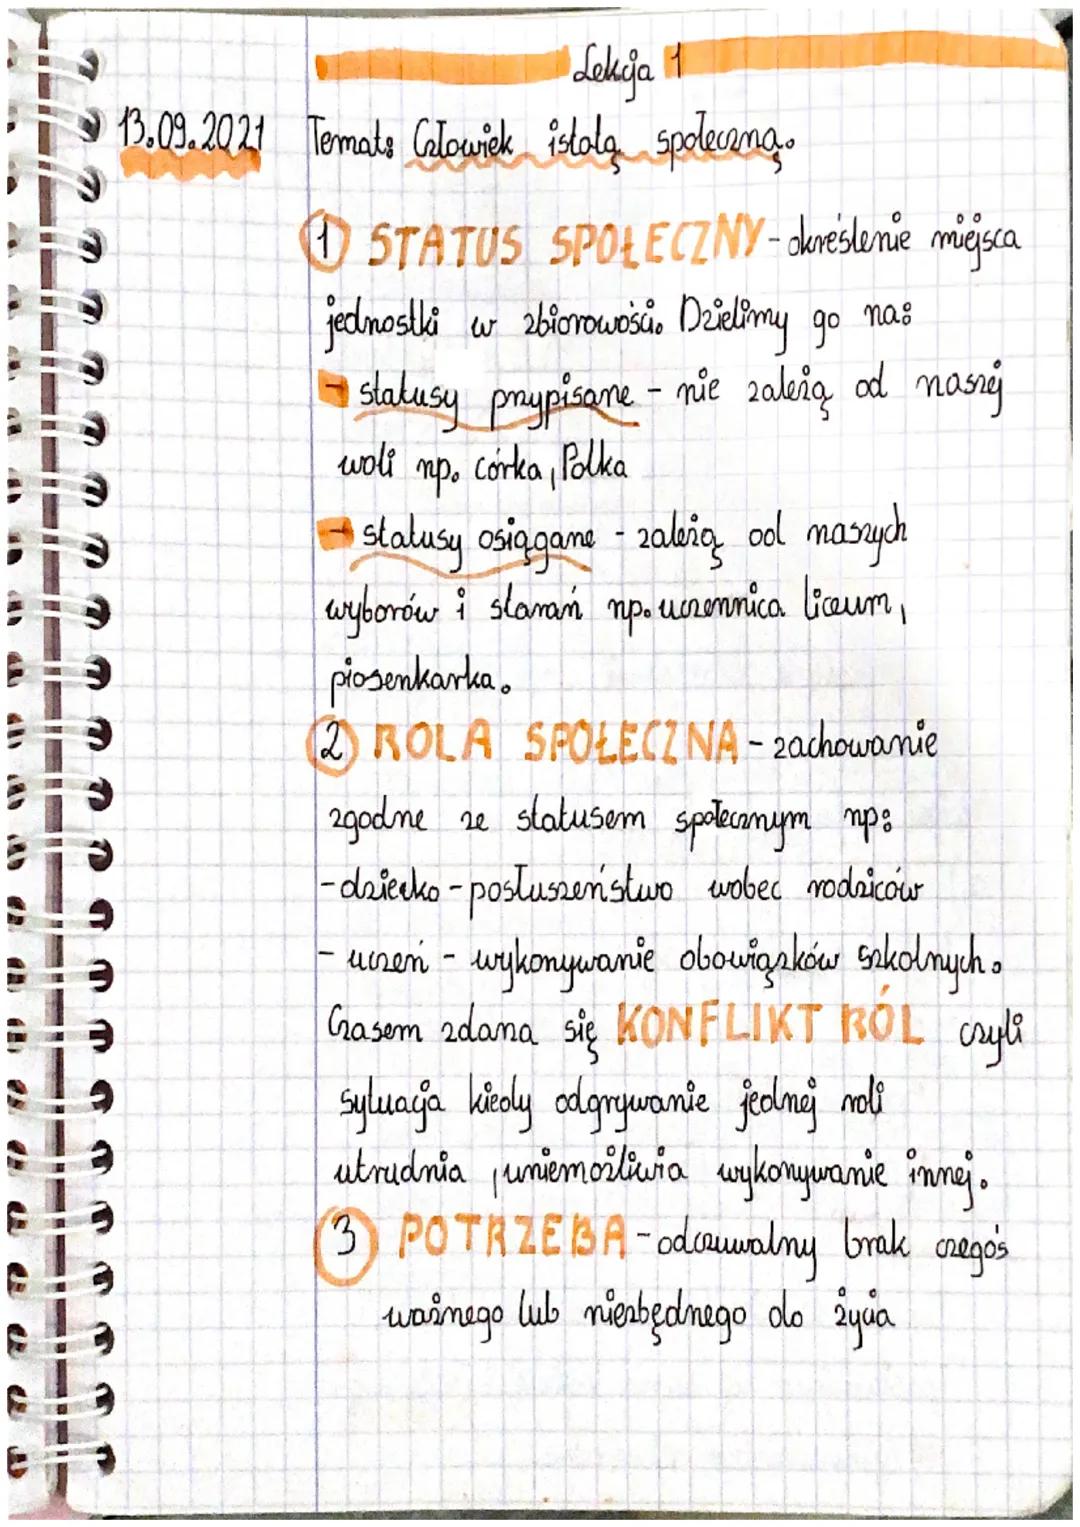 Lekcja 1
13.09.2021 Temat: Człowiek istotą społeczną.
1 STATUS SPOŁECZNY - określenie miejsca
jednostki w zbiorowości. Dzielimy go na:
→ statusy przypisane - nie zależą od naszej
woli np. córka, Polka
→ statusy osiągane - zależą od naszych
wyborów i starań np. uczennica liceum,
piosenkarka.
2 ROLA SPOŁECZNA - zachowanie
zgodne ze statusem społecznym np:
- dziecko - posłuszeństwo wobec rodziców
- uczeń - wykonywanie obowiązków szkolnych.
Czasem zdarza się KONFLIKT RÓL czyli
sytuacja kiedy odgrywanie jednej roli
utrudnia, uniemożliwia wykonywanie innej.
3 POTRZEBA - odczuwalny brak czegoś
ważnego lub niezbędnego do życia